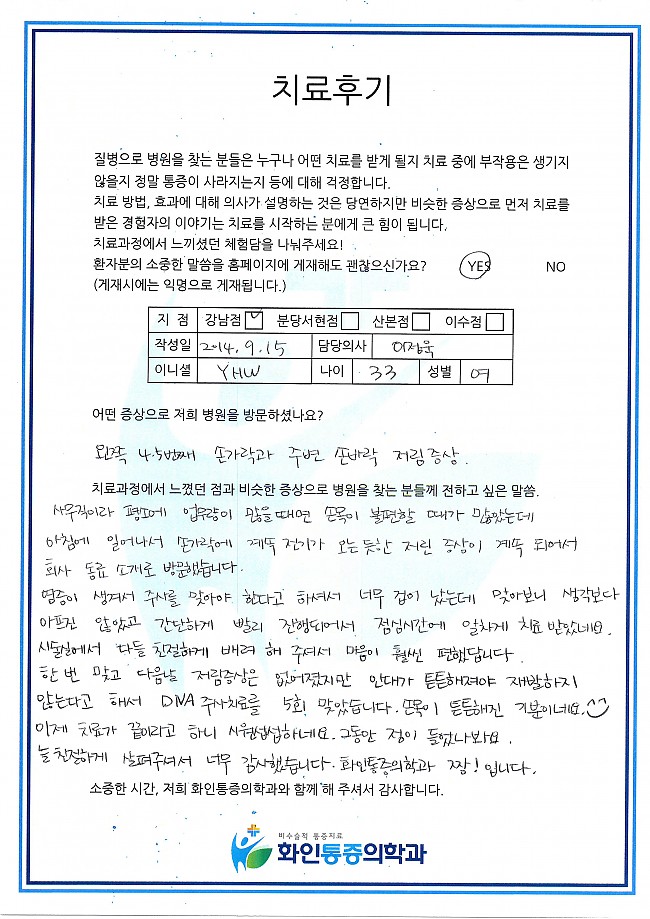 치료후기
질병으로 병원을 찾는 분들은 누구나 어떤 치료를 받게 될지 치료 중에 부작용은 생기지
않을지 정말 통증이 사라지는지 등에 대해 걱정합니다.
치료 방법, 효과에 대해 의사가 설명하는 것은 당연하지만 비슷한 증상으로 먼저 치료를
받은 경험자의 이야기는 치료를 시작하는 분에게 큰 힘이 됩니다.
치료과정에서 느끼셨던 체험담을 나눠주세요!
환자분의 소중한 말씀을 홈페이지에 게재해도 괜찮으신가요? YES NO
(게재시에는 익명으로 게재됩니다.)
지 점 강남점 분당서현점 산본점 이수점
작성일 2014. 9. 15 담당의사 이정욱
이니셜 YHW 나이 33 성별 여
어떤 증상으로 저희 병원을 방문하셨나요?
왼쪽 4.5번째 손가락과 주변 손바닥 저림증상.
치료과정에서 느꼈던 점과 비슷한 증상으로 병원을 찾는 분들께 전하고 싶은 말씀.
사무직이라 평소에 업무량이 많을때면 손목이 불편할 때가 많았는데
아침에 일어나서 손가락에 계속 전기가 오는 듯한 저린 증상이 계속 되어서
회사 동료 소개로 방문했습니다.
염증이 생겨서 주사를 맞아야 한다고 하셔서 너무 겁이 났는데 맞아보니 생각보다
아프진 않았고 간단하게 빨리 진행되어서 점심시간에 알차게 치료 받았네요.
시술실에서 다들 친절하게 배려 해 주셔서 마음이 훨씬 편했답니다.
한 번 맞고 다음날 저림증상은 없어졌지만 인대가 튼튼해져야 재발하지
않는다고 해서 DNA 주사치료를 5회 맞았습니다. 손목이 튼튼해진 기분이네요.
이제 치료가 끝이라고 하니 시원섭섭하네요. 그동안 정이 들었나봐요.
늘 친절하게 살펴주셔서 너무 감사했습니다. 화인통증의학과 짱! 입니다.
소중한 시간, 저희 화인통증의학과와 함께 해 주셔서 감사합니다.
비수술적 통증치료
화인통증의학과